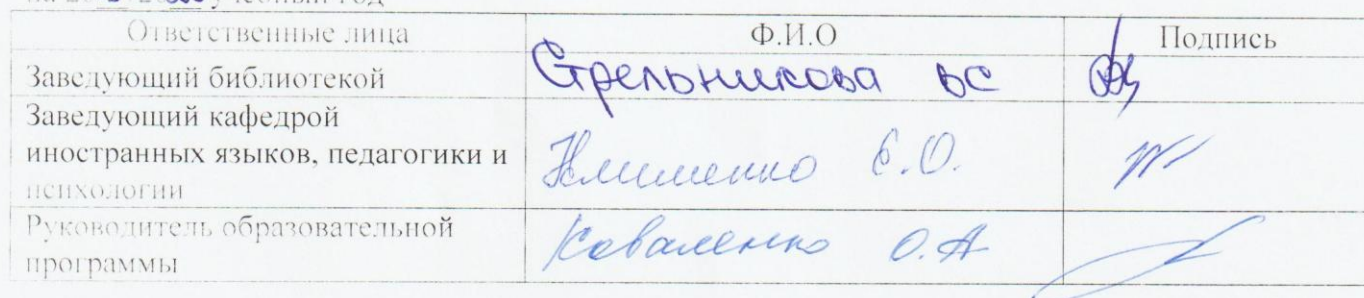 учебный год
Ответственные лица Ф.И.О Подпись
Заведующий библиотекой Стрельникова ВС
Заведующий кафедрой
иностранных языков, педагогики и
психологии Е.О.
Руководитель образовательной
программы Коваленко О.А